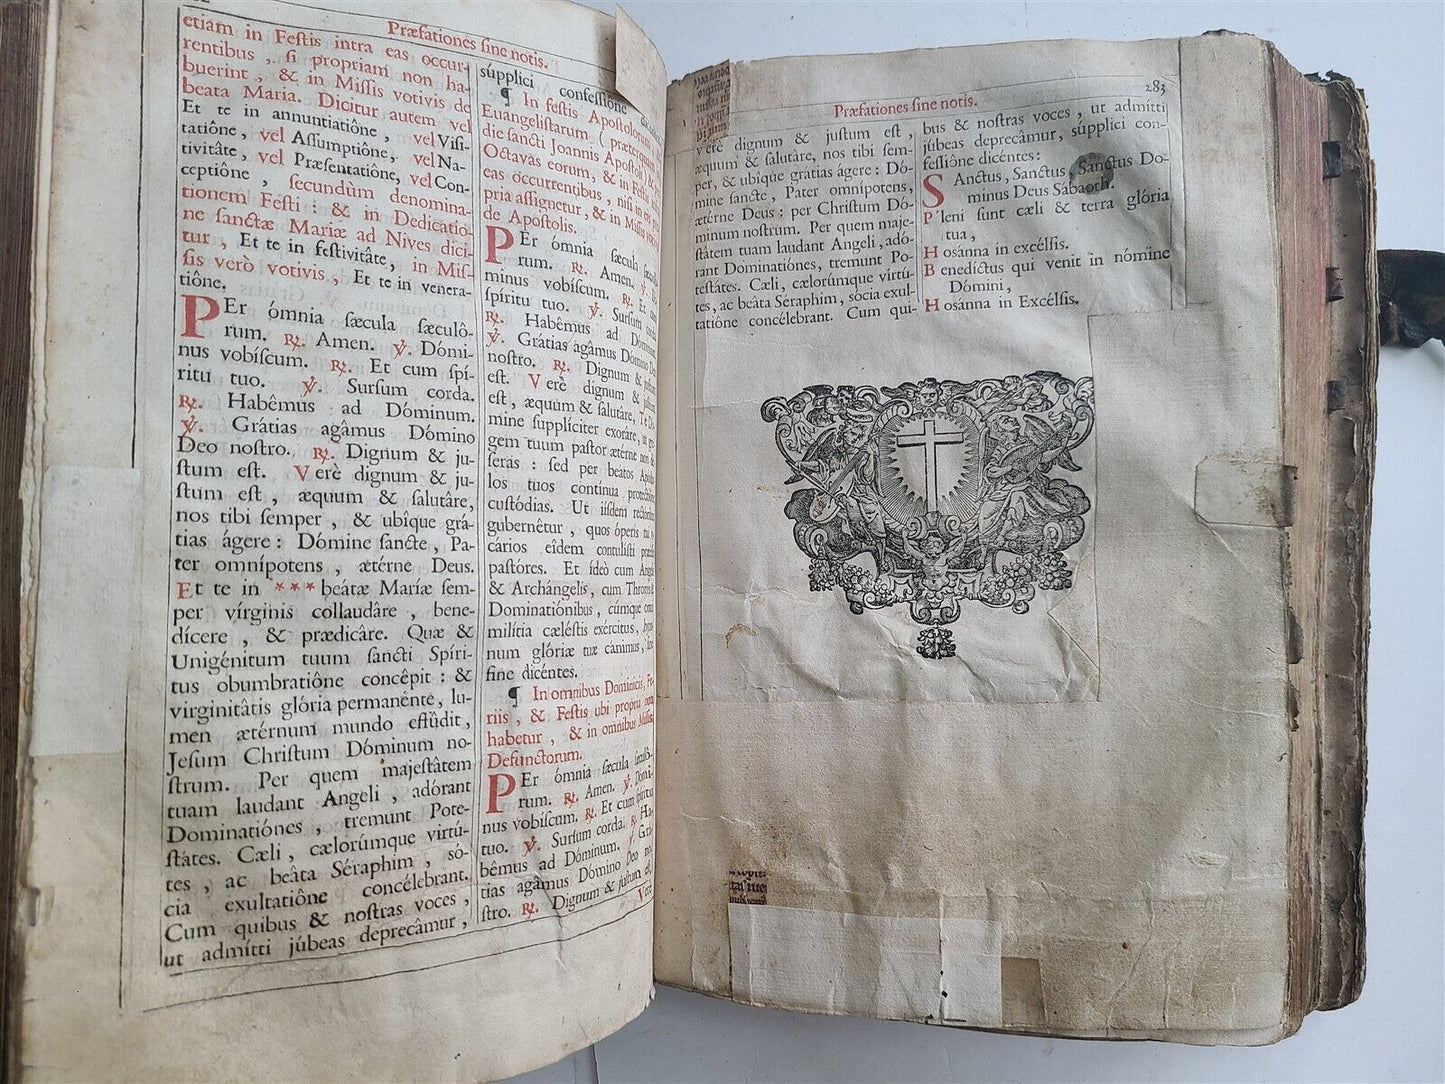 Præfationes ſine notis.
etiam in Feſtis intra eas occur-
rentibus, ſi propriam non ha-
buerint, & in Miſſis votivis de
beata Maria. Dicitur autem vel
Et te in annuntiatiône, vel Viſi-
tatiône, vel Aſſumptiône, vel Na-
tivitâte, vel Præſentatiône, vel Con-
ceptiône, ſecundùm denomina-
tionem Feſti: & in Dedicatio-
ne ſanctæ Mariæ ad Nives dici-
tur, Et te in feſtivitâte, in Miſ-
ſis verò votivis, Et te in venera-
tiône.
PEr ómnia ſæcula ſæculô-
rum. ℟. Amen. ℣. Dómi-
nus vobíſcum. ℟. Et cum ſpí-
ritu tuo. ℣. Surſum corda.
℟. Habêmus ad Dóminum.
℣. Grátias agâmus Dómino
Deo noſtro. ℟. Dignum & ju-
ſtum eſt. Verè dignum & ju-
ſtum eſt, æquum & ſalutâre,
nos tibi ſemper, & ubîque grá-
tias ágere: Dómine ſancte, Pa-
ter omnípotens, ætérne Deus.
Et te in *** beátæ Maríæ ſem-
per vírginis collaudâre, bene-
dícere, & prædicâre. Quæ &
Unigénitum tuum ſancti Spíri-
tus obumbratiône concêpit: &
virginitâtis glória permanênte, lu-
men ætérnum mundo effûdit,
Jeſum Chriſtum Dóminum no-
ſtrum. Per quem majeſtâtem
tuam laudant Angeli, adórant
Dominatiónes, tremunt Pote-
ſtátes. Cæli, cælorúmque virtú-
tes, ac beâta Séraphim, ſó-
cia exultatiône concélebrant.
Cum quibus & noſtras voces,
ut admítti júbeas deprecâmur,
súpplici confeſſiône
¶ In feſtis Apoſtolorum
Euangeliſtarum (præterquam
die ſancti Joannis Apoſtoli) &
Octavas eorum, & in Feſtis
eas occurrentibus, niſi in eis
pria aſſignetur, & in Miſſis
de Apoſtolis.
PEr ómnia ſæcula
rum. ℟. Amen. ℣.
minus vobíſcum. ℟. Et cum
ſpíritu tuo. ℣. Surſum
℟. Habêmus ad Dóminum.
℣. Grátias agâmus Dómino
noſtro. ℟. Dignum &
eſt. Verè dignum &
eſt, æquum & ſalutâre, Te
mine ſupplíciter exorâre, ut
gem tuum paſtor ætérne non
ſeras: ſed per beatos
los tuos contínua
cuſtódias. Ut iíſdem
gubernêtur, quos óperis
cários eîdem contulíſti
paſtóres. Et ídeò cum
& Archángelis, cum Thronis
Dominatiónibus, cúmque
milítia cæléſtis exércitus,
num glóriæ tuæ cánimus,
fine dicéntes.
¶ In omnibus Dominicis, Fe-
riis, & Feſtis ubi propria non
habetur, & in omnibus Miſſis
Defunctorum.
PEr ómnia ſæcula ſæculô-
rum. ℟. Amen. ℣. Dómi-
nus vobíſcum. ℟. Et cum ſpíritu
tuo. ℣. Surſum corda. ℟. Ha-
bêmus ad Dóminum. ℣. Grá-
tias agâmus Dómino Deo no-
ſtro. ℟. Dignum & juſtum eſt,
Verè
Præfationes ſine notis.
283
verè dignum & juſtum eſt,
æquum & ſalutâre, nos tibi ſem-
per, & ubîque grátias ágere: Dó-
mine ſancte, Pater omnípotens,
ætérne Deus: per Chriſtum Dó-
minum noſtrum. Per quem maje-
ſtâtem tuam laudant Angeli, adó-
rant Dominatiónes, tremunt Po-
teſtátes. Cæli, cælorúmque virtú-
tes, ac beâta Seraphim, sócia exul-
tatiône concélebrant. Cum qui-
bus & noſtras voces, ut admítti
júbeas deprecâmur, súpplici con-
feſſiône dicéntes:
SAnctus, Sanctus, Sanctus Do-
minus Deus Sábaoth.
Pleni ſunt cæli & terra glória
tua,
Hosánna in excélſis.
Benedíctus qui venit in nómine
Dómini,
Hosánna in Excélſis.